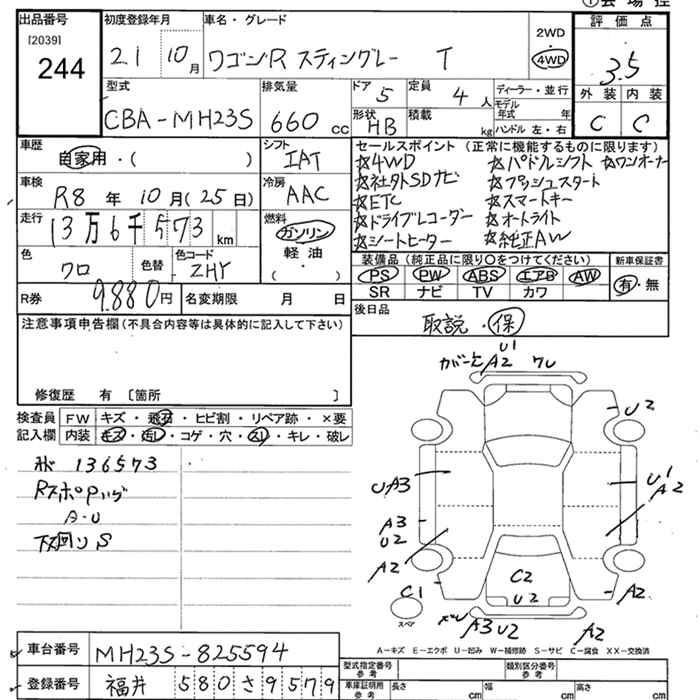 出品番号
[2039]
244
初度登録年月
21 10月
車名・グレード
ワゴンR スティングレー T
2WD
4WD
評価点
3.5
型式
CBA-MH23S
排気量
660 cc
ドア
5
定員
4 人
形状
HB
積載
kg
ディーラー・並行
モデル年式 年
ハンドル 左・右
外装 内装
C C
車歴
自家用・( )
シフト
IAT
車検
R8 年 10 月(25日)
冷房
AAC
走行
13万6千573 km
燃料
ガソリン
軽油
( )
色
クロ
色替
色コード
ZHY
R券
9.880円
名変期限 月 日
セールスポイント (正常に機能するものに限ります)
☆4WD ☆パドルシフト ☆ワンオーナー
☆社外SDナビ ☆プッシュスタート
☆ETC ☆スマートキー
☆ドライブレコーダー ☆オートライト
☆シートヒーター ☆純正AW
装備品 (純正品に限り○をつけてください)
新車保証書
PS PW ABS エアB AW
SR ナビ TV カワ
有・無
後日品
取説・保
注意事項申告欄(不具合内容等は具体的に記入して下さい)
修復歴 有 〔箇所 〕
検査員記入欄
FW キズ・飛石・ヒビ割・リペア跡・×要
内装 キズ・汚レ・コゲ・穴・スレ・キレ・破レ
136573
A・U
下回りS
U1
A2 クレ
U2
UA3
U1
A2
A3
U2
A2
C1
C2
U2
A2
A3 U2
A2
スペア
A－キズ E－エクボ U－凹み W－補修跡 S－サビ C－腐食 XX－交換済
車台番号
MH23S-825594
登録番号
福井 580 さ 9579
型式指定番号
参考
類別区分番号
参考
車庫証明用
参考
長さ cm 幅 cm 高さ cm